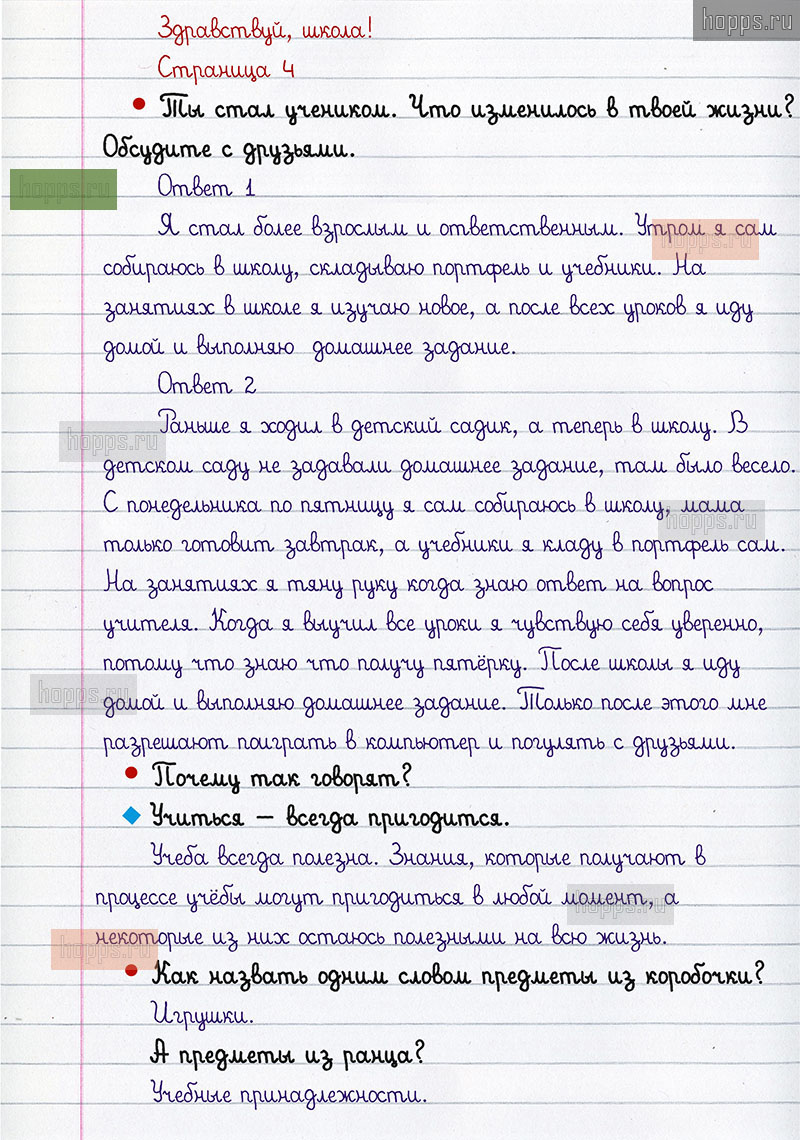 hopps.ru
Здравствуй, школа!
Страница 4
• Ты стал учеником. Что изменилось в твоей жизни?
Обсудите с друзьями.
hopps.ru
Ответ 1
Я стал более взрослым и ответственным. Утром я сам
hopps.ru
собираюсь в школу, складываю портфель и учебники. На
занятиях в школе я изучаю новое, а после всех уроков я иду
домой и выполняю домашнее задание.
Ответ 2
Раньше я ходил в детский садик, а теперь в школу. В
hopps.ru
детском саду не задавали домашнее задание, там было весело.
С понедельника по пятницу я сам собираюсь в школу, мама
hopps.ru
только готовит завтрак, а учебники я кладу в портфель сам.
На занятиях я тяну руку когда знаю ответ на вопрос
учителя. Когда я выучил все уроки я чувствую себя уверенно,
потому что знаю что получу пятёрку. После школы я иду
hopps.ru
домой и выполняю домашнее задание. Только после этого мне
разрешают поиграть в компьютер и погулять с друзьями.
• Почему так говорят?
Учиться — всегда пригодится.
Учеба всегда полезна. Знания, которые получают в
процессе учёбы могут пригодиться в любой момент, а
hopps.ru
некоторые из них остаюсь полезными на всю жизнь.
hopps.ru
• Как назвать одним словом предметы из коробочки?
Игрушки.
А предметы из ранца?
Учебные принадлежности.